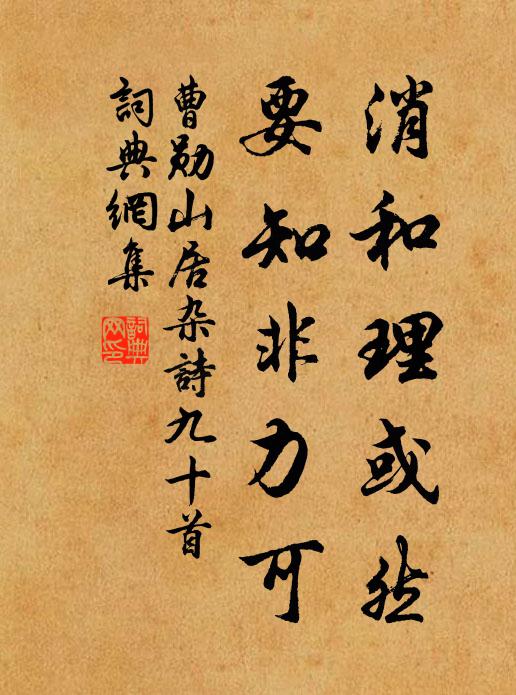 消和理或然
要知非力可
曹勛山居杂詩九十首
詞典網集
詞典網印